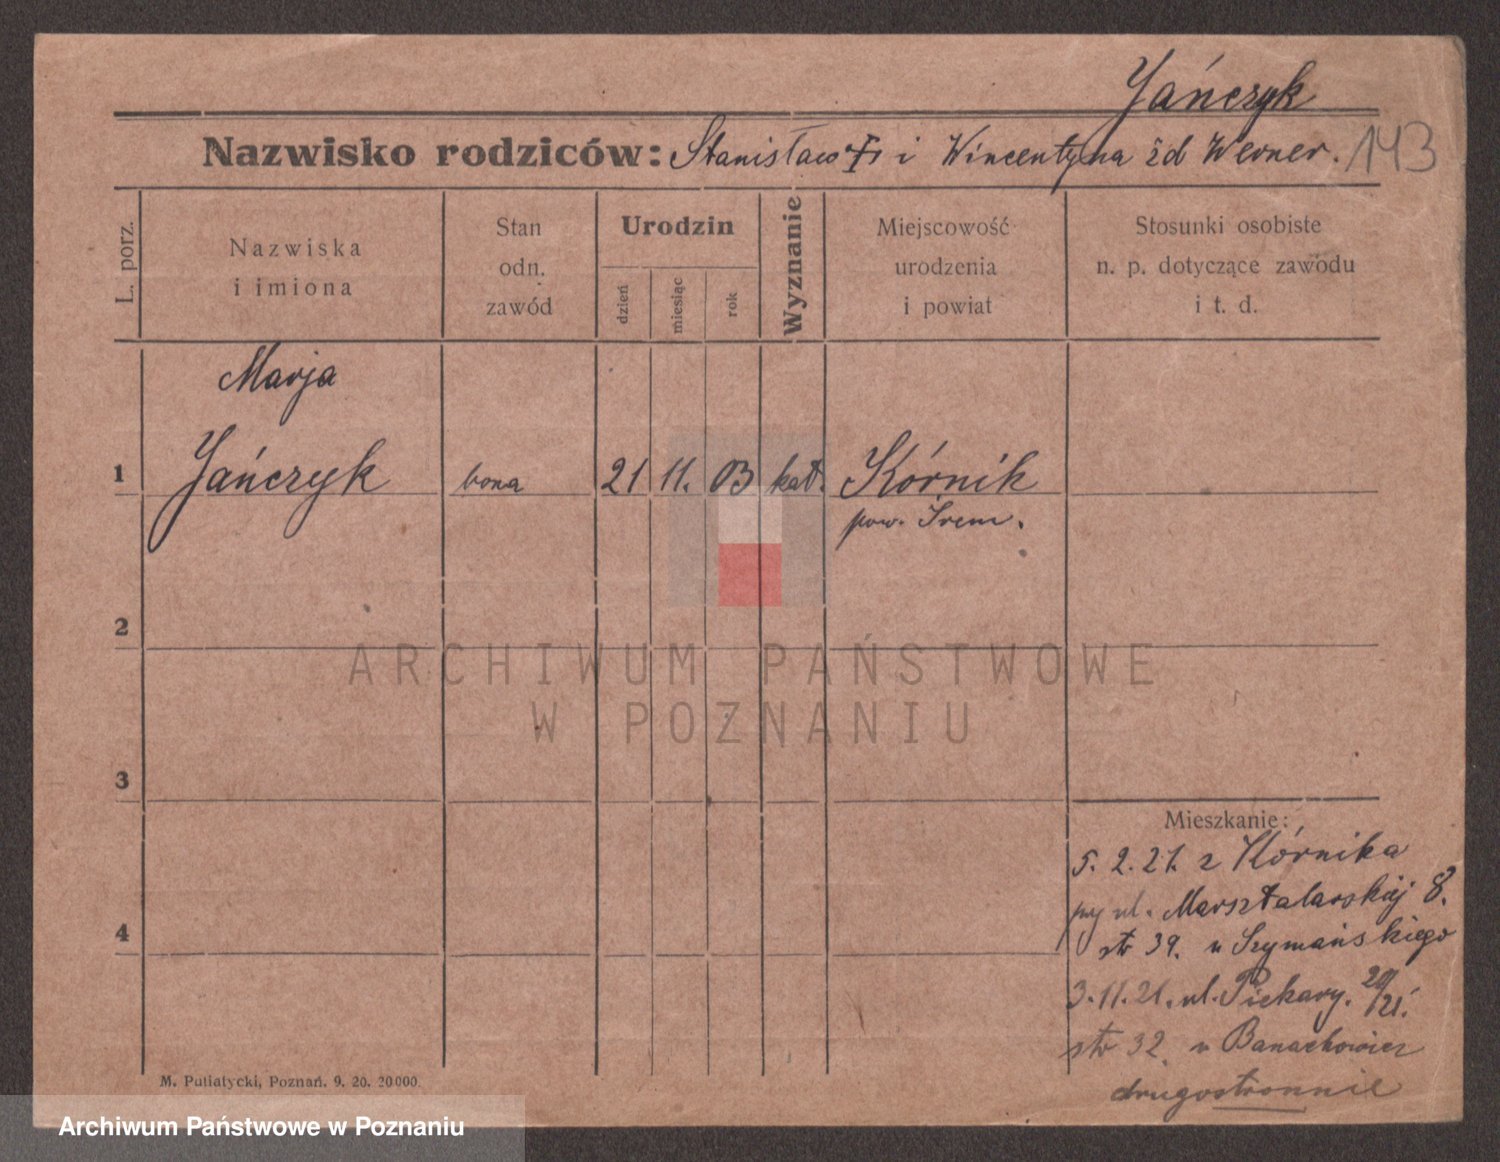 Jańczyk
Nazwisko rodziców: Stanisław i Wincentyna żd Werner. 143
L. porz.
Nazwiska
i imiona
Stan
odn.
zawód
Urodzin
dzień
miesiąc
rok
Wyznanie
Miejscowość
urodzenia
i powiat
Stosunki osobiste
n. p. dotyczące zawodu
i t. d.
Marja
1 Jańczyk bona 21 11. 03 kat. Kórnik
pow. Śrem.
2
ARCHIWUM PAŃSTWOWE
W POZNANIU
3
Mieszkanie:
5. 2. 21. z Kórnika
4
ul. Marsztalarskiej 8.
str 39. u Szymańskiego
3.11.21. ul. Piekary. 20/21.
str 32 u Banachowicz
drugostronnie
M. Putiatycki, Poznań. 9. 20. 20000.
Archiwum Państwowe w Poznaniu